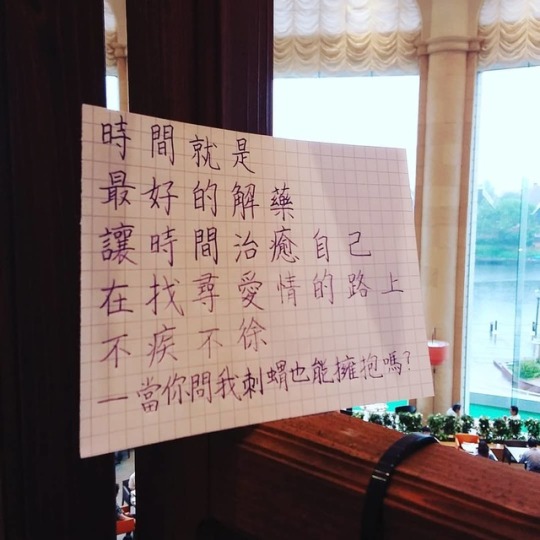 時間就是
最好的解藥
讓時間治癒自己
在找尋愛情的路上
不疾不徐
—當你問我刺蝟也能擁抱嗎?